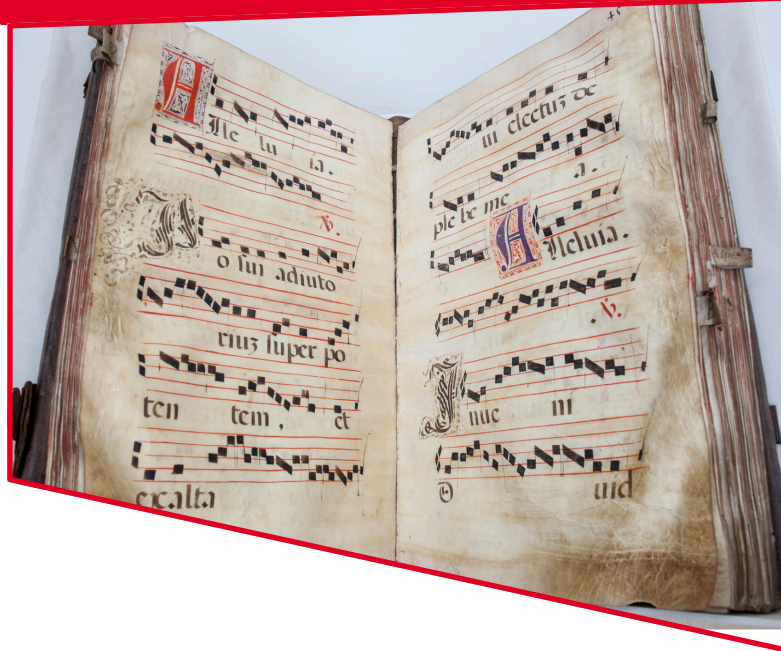 Alle lu ia.
℣.
Po sui adiuto
riuz super po
ten tem, et
exalta
ui electuz de
ple be me a.
Alleluia.
℣.
Inue ni
uid